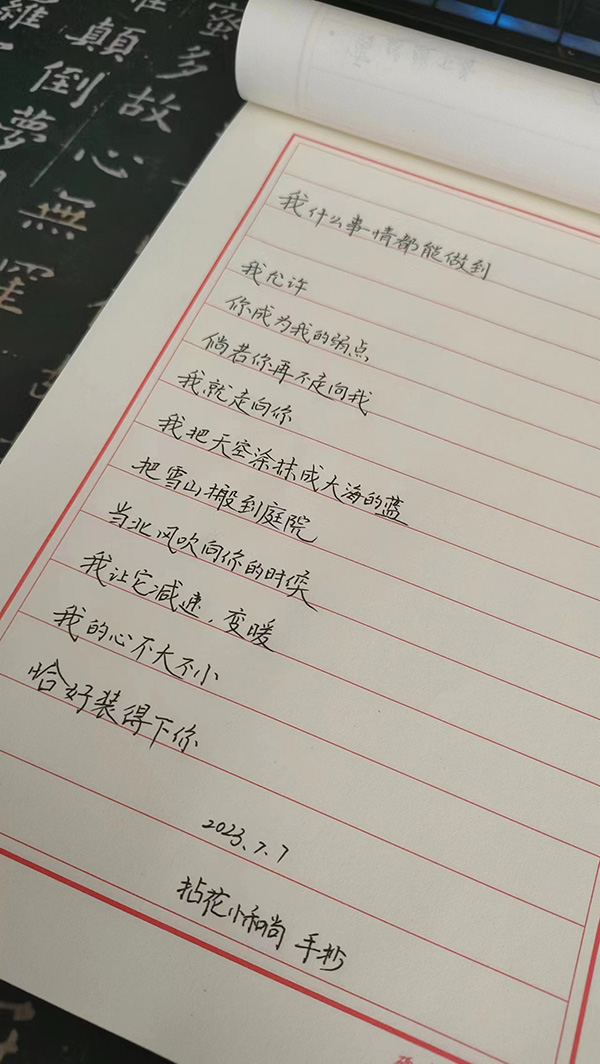 我什么事情都能做到
我允许
你成为我的弱点
倘若你再不走向我
我就走向你
我把天空涂抹成大海的蓝
把雪山搬到庭院
当北风吹向你的时候
我让它减速，变暖
我的心不大不小
恰好装得下你
2023.7.7
拈花小和尚 手抄
蜜多故
羅顛倒
心無罣
夢